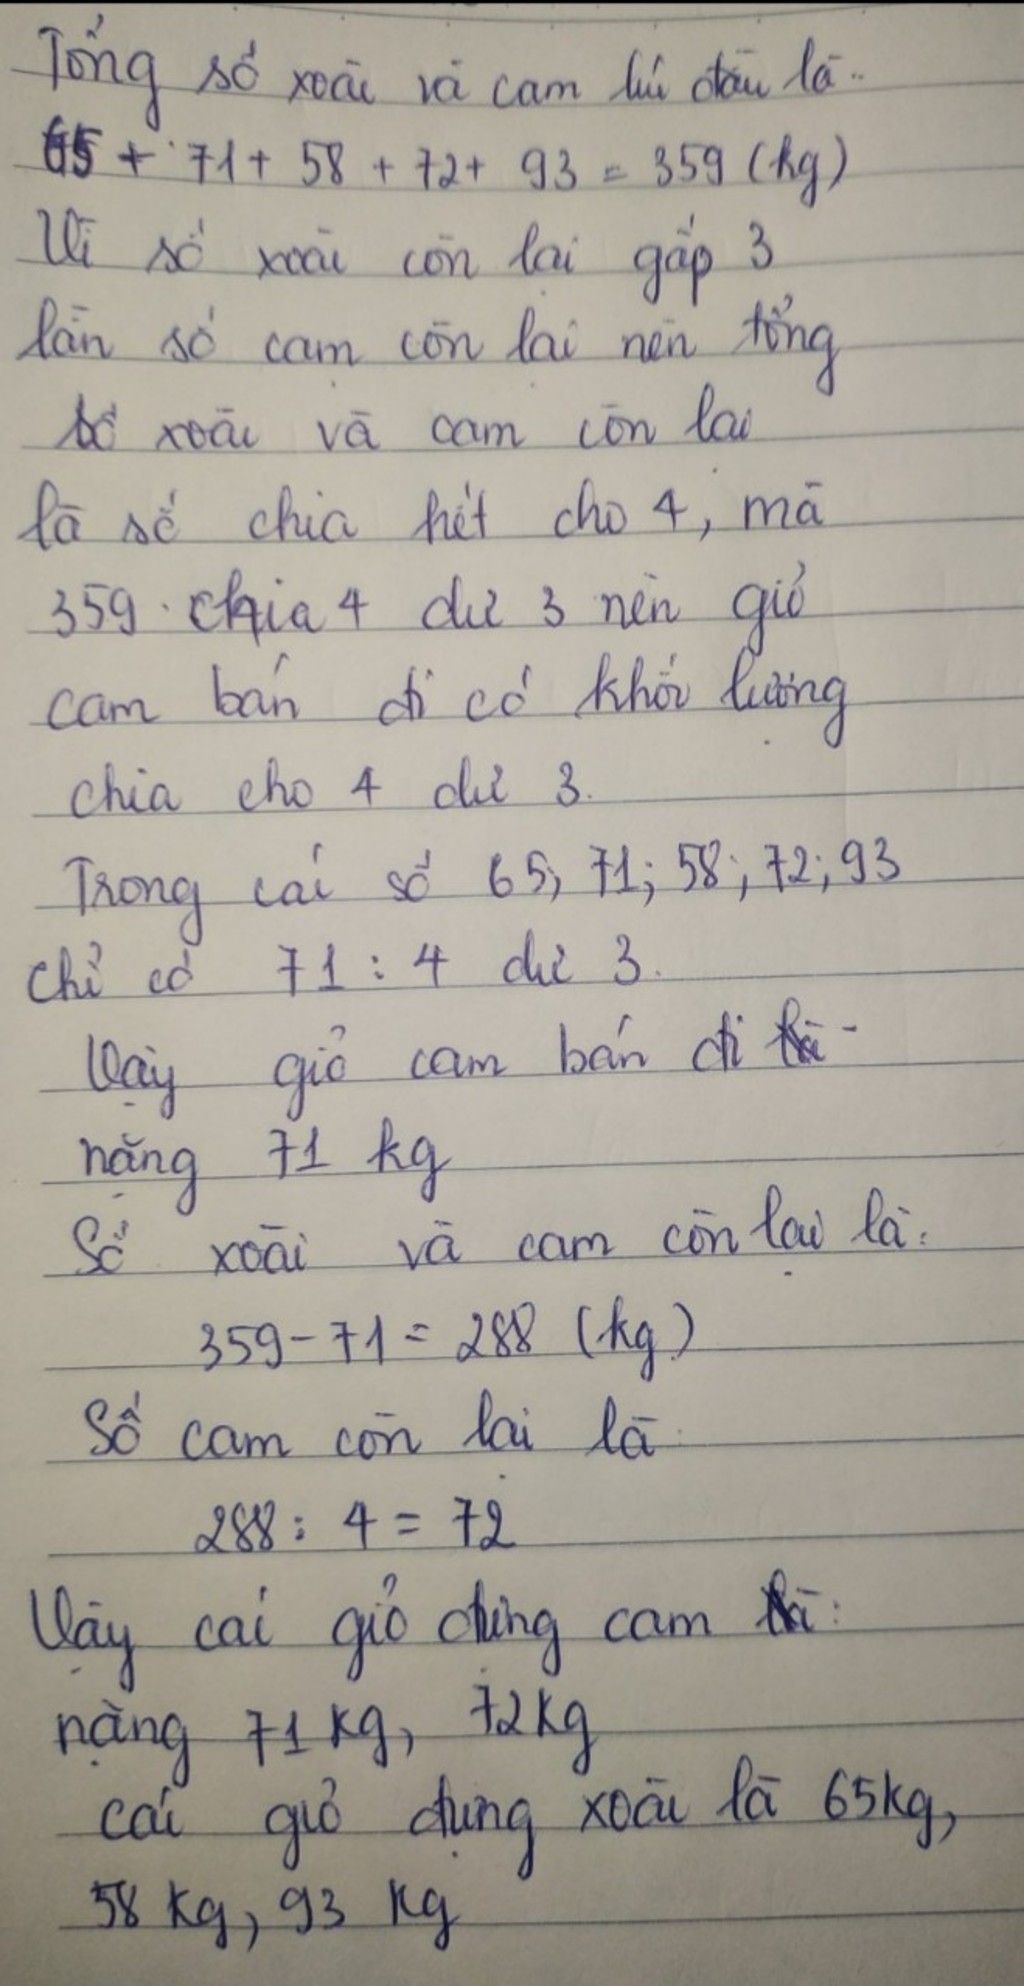 Tổng số xoài và cam lúc đầu là..
65 + 71 + 58 + 72 + 93 = 359 (kg)
Vì số xoài còn lại gấp 3
lần số cam còn lại nên tổng
số xoài và cam còn lại
là số chia hết cho 4, mà
359 chia 4 dư 3 nên giỏ
cam bán đi có khối lượng
chia cho 4 dư 3.
Trong các số 65; 71; 58; 72; 93
chỉ có 71 : 4 dư 3.
Vậy giỏ cam bán đi
nặng 71 kg
Số xoài và cam còn lại là:
359 - 71 = 288 (kg)
Số cam còn lại là
288 : 4 = 72
Vậy các giỏ đựng cam là:
nặng 71 kg, 72 kg
các giỏ đựng xoài là 65kg,
58 kg, 93 kg